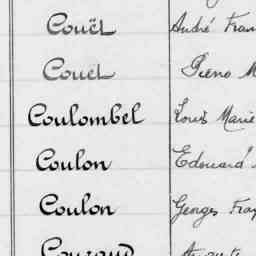 Couët André Fran
Couet Piéno M
Coulombel Louis Marie
Coulon Edouard
Coulon Georges Fra
Couraud Auguste